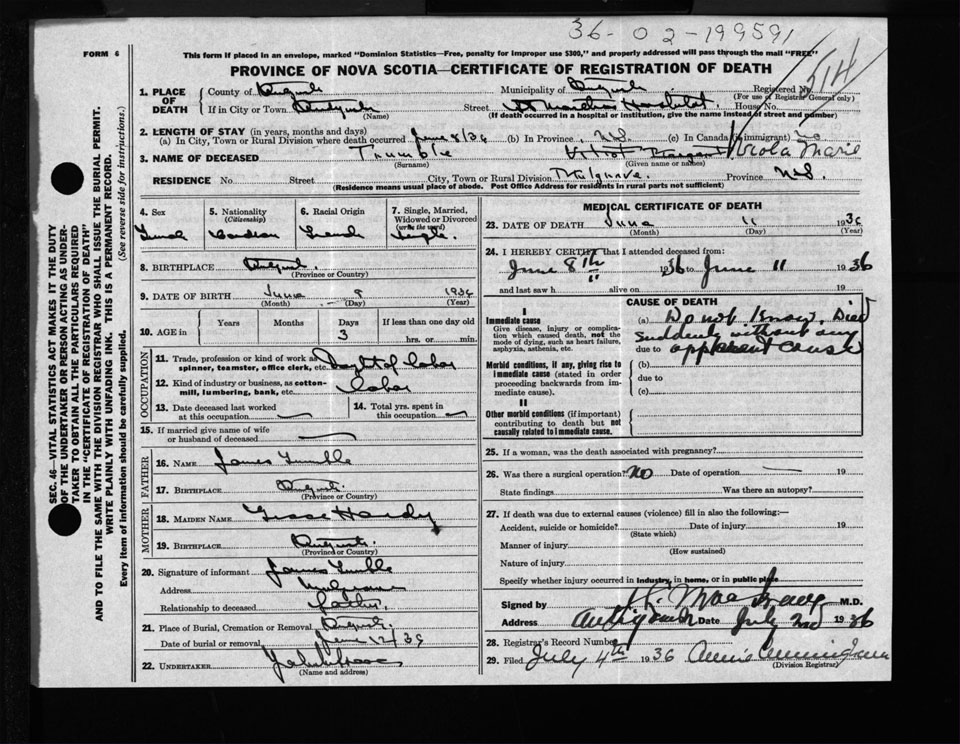 36-02-199591
FORM 6
This form if placed in an envelope, marked "Dominion Statistics—Free, penalty for improper use $300," and properly addressed will pass through the mail "FREE"
PROVINCE OF NOVA SCOTIA—CERTIFICATE OF REGISTRATION OF DEATH
514
1. PLACE OF DEATH
County of
Municipality of
Registered No.
(For use of Registrar General only)
If in City or Town
(Name)
Street St Martha's Hospital.
House No.
(If death occurred in a hospital or institution, give the name instead of street and number)
2. LENGTH OF STAY (in years, months and days)
(a) In City, Town or Rural Division where death occurred June 8/36 (b) In Province N.S. (c) In Canada (if immigrant) No
3. NAME OF DECEASED Trumble Viola Marie
(Surname) (Given name or names)
RESIDENCE No. Street City, Town or Rural Division Mulgrave. Province N.S.
(Residence means usual place of abode. Post Office Address for residents in rural parts not sufficient)
SEC. 46—VITAL STATISTICS ACT MAKES IT THE DUTY
OF THE UNDERTAKER OR PERSON ACTING AS UNDER-
TAKER TO OBTAIN ALL THE PARTICULARS REQUIRED
IN THE "CERTIFICATE OF REGISTRATION OF DEATH"
AND TO FILE THE SAME WITH THE DIVISION REGISTRAR WHO SHALL ISSUE THE BURIAL PERMIT.
WRITE PLAINLY WITH UNFADING INK. THIS IS A PERMANENT RECORD.
Every item of information should be carefully supplied. (See reverse side for instructions.)
4. Sex
5. Nationality (Citizenship)
6. Racial Origin
7. Single, Married, Widowed or Divorced (write the word)
Female Canadian French Single.
8. BIRTHPLACE
(Province or Country)
9. DATE OF BIRTH June 8 1936
(Month) (Day) (Year)
10. AGE in
Years Months Days If less than one day old
3 hrs. or min.
OCCUPATION
11. Trade, profession or kind of work as spinner, teamster, office clerk, etc. of labor
12. Kind of industry or business, as cotton-mill, lumbering, bank, etc. labor
13. Date deceased last worked at this occupation
14. Total yrs. spent in this occupation
15. If married give name of wife or husband of deceased
FATHER
16. NAME James Trumble
17. BIRTHPLACE
(Province or Country)
MOTHER
18. MAIDEN NAME Hardy
19. BIRTHPLACE
(Province or Country)
20. Signature of informant James Trumble
Address Mulgrave
Relationship to deceased father
21. Place of Burial, Cremation or Removal
Date of burial or removal June 12/36
22. UNDERTAKER
(Name and address)
MEDICAL CERTIFICATE OF DEATH
23. DATE OF DEATH June 11 1936
(Month) (Day) (Year)
24. I HEREBY CERTIFY that I attended deceased from:
June 8th 1936 to June 11 1936
and last saw h alive on 19
CAUSE OF DEATH
I
Immediate cause
Give disease, injury or complication which caused death, not the mode of dying, such as heart failure, asphyxia, asthenia, etc.
(a) Do not Know, Died
suddenly without any
due to apparent cause
Morbid conditions, if any, giving rise to immediate cause (stated in order proceeding backwards from immediate cause).
(b)
due to
(c)
II
Other morbid conditions (if important) contributing to death but not causally related to immediate cause.
25. If a woman, was the death associated with pregnancy?
26. Was there a surgical operation? No Date of operation 19
State findings Was there an autopsy?
27. If death was due to external causes (violence) fill in also the following:—
Accident, suicide or homicide? Date of injury 19
(State which)
Manner of injury
(How sustained)
Nature of injury
Specify whether injury occurred in industry, in home, or in public place
Signed by M.D.
Address Antigonish Date July 2nd 1936
28. Registrar's Record Number
29. Filed July 4th 1936 Annie Cunningham
(Division Registrar)